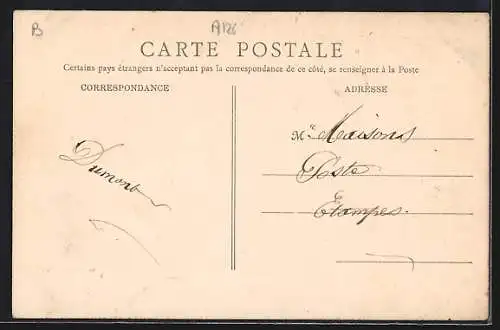 B
CARTE POSTALE
Certains pays étrangers n'acceptant pas la correspondance de ce côté, se renseigner à la Poste
CORRESPONDANCE
ADRESSE
Dumont
Mr Maisons
Poste
Etampes.